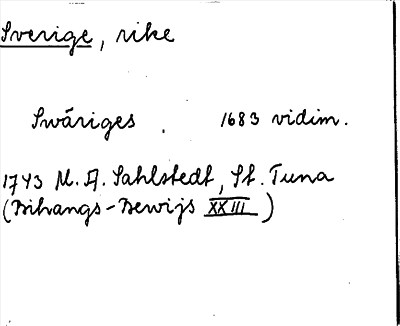 Sverige, rike
Swäriges. 1683 vidim.
1743 M. A. Sahlstedt, St. Tuna
(Bihangs-Bewijs XXIII)